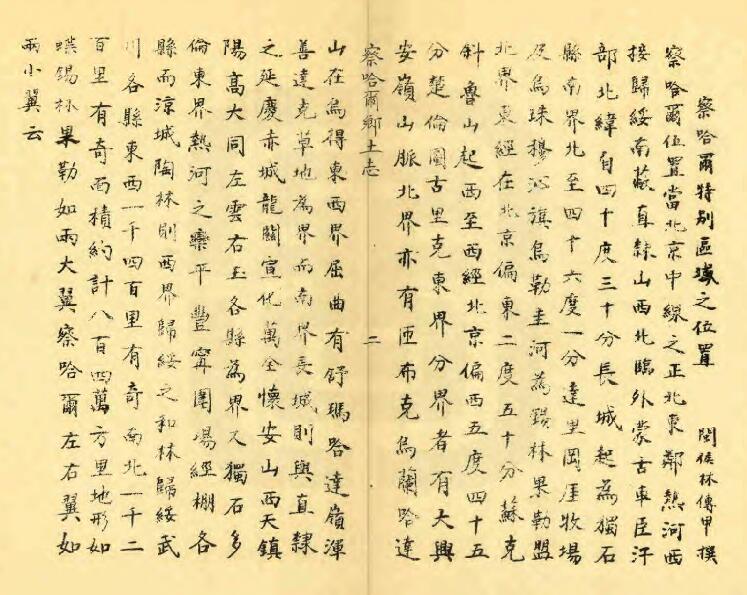 察哈爾特別區域之位置　閩侯林傳甲撰
察哈爾位置當北京中線之正北東鄰熱河西
接歸綏南蔽直隸山西北臨外蒙古車臣汗
部北緯自四十度三十分長城起為獨石
縣南界北至四十六度一分達里岡厓牧場
及烏珠穆沁旗烏勒圭河為錫林果勒盟
北界東經在北京偏東二度五十分蘇克
斜魯山起西至西經北京偏西五度四十五
分楚倫圖古里克東界分界者有大興
安嶺山脈北界亦有匝布克烏蘭哈達
察哈爾鄉土志　二
山在烏得東西界屈曲有舒瑪哈達嶺渾
善達克草地為界而南界長城則與直隸
之延慶赤城龍關宣化萬全懷安山西天鎮
陽高大同左雲右玉各縣為界又獨石多
倫東界熱河之灤平豐寧圍場經棚各
縣而涼城陶林則西界歸綏之和林歸綏武
川各縣東西一千四百里有奇南北一千二
百里有奇面積約計八百四萬方里地形如
蝶錫林果勒如兩大翼察哈爾左右翼如
兩小翼云